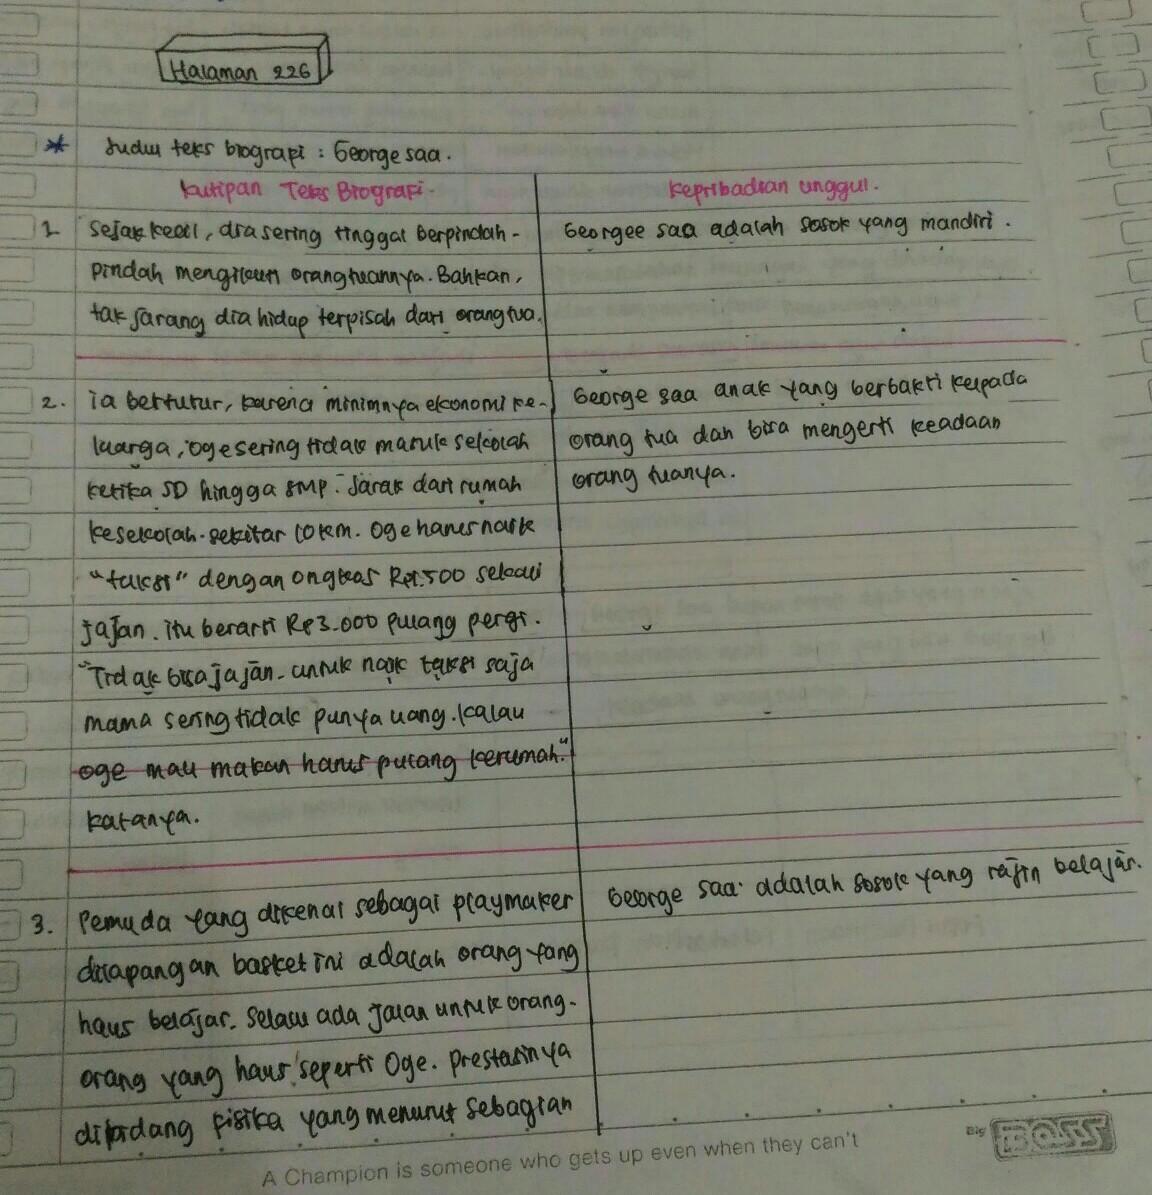 Halaman 226
* Judul teks biograpi : George saa.
Kutipan Teks Biograpi.
Kepribadian unggul.
1 Sejak kecil, dia sering tinggal berpindah-
pindah mengikuti orangtuannya. Bahkan,
tak jarang dia hidup terpisah dari orangtua.
Georgee saa adalah sosok yang mandiri.
2. ia bertutur, karena minimnya ekonomi ke-
luarga, oge sering tidak masuk sekolah
ketika SD hingga SMP. Jarak dari rumah
kesekolah sekitar 10 km. Oge harus naik
"taksi" dengan ongkos Rp1.500 sekali
jajan. itu berarti Rp3.000 pulang pergi.
"Tidak bisa jajan. untuk naik taksi saja
mama sering tidak punya uang. kalau
oge mau makan harus pulang kerumah."
katanya.
George saa anak yang berbakti kepada
orang tua dan bisa mengerti keadaan
orang tuanya.
3. Pemuda yang dikenal sebagai playmaker
dilapangan basket ini adalah orang yang
haus belajar. Selalu ada jalan untuk orang-
orang yang haus seperti Oge. Prestasinya
dibidang fisika yang menurut sebagian
George saa adalah sosok yang rajin belajar.
A Champion is someone who gets up even when they can't
Big BOSS